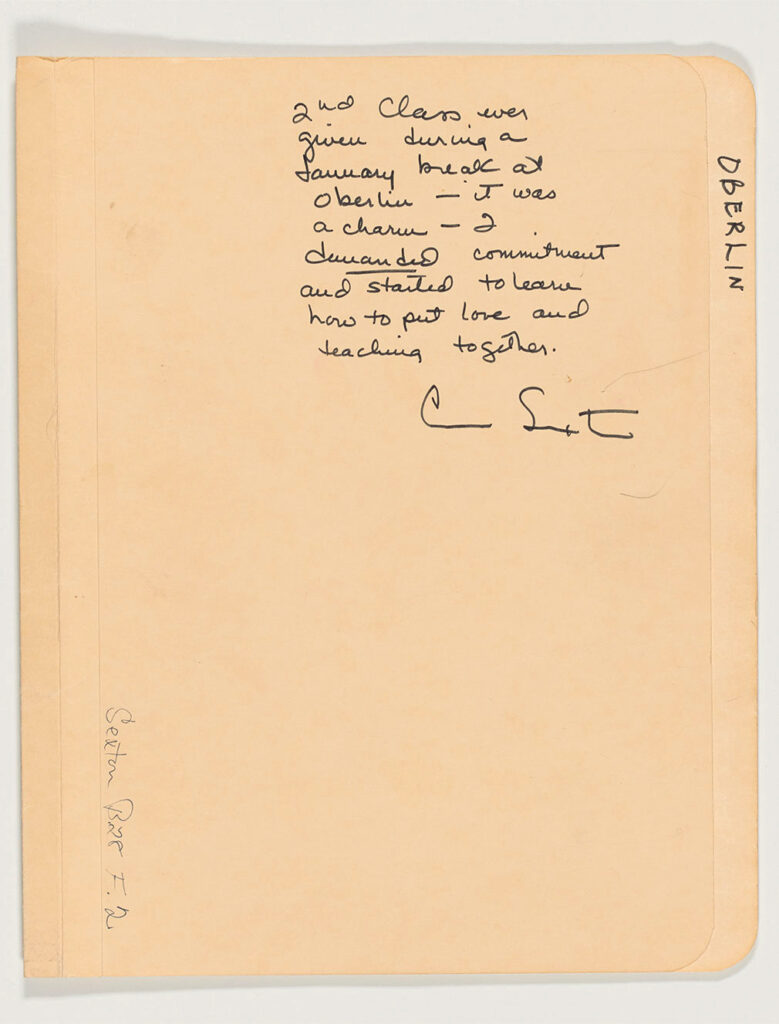 2nd Class ever
given during a
January break at
Oberlin — it was
a charm — I
demanded commitment
and started to learn
how to put love and
teaching together.
OBERLIN
Sexton F. 2